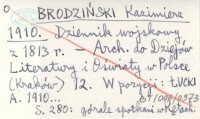 BRODZIŃSKI Kazimierz
1910. Dziennik wojskowy
z 1813 r. – Arch. do Dziejów
Literatury i Oświaty w Polsce
(Kraków) 12. W pozycji: ŁUCKI
A. 1910...
S. 280: górale spotkani w Kętach.